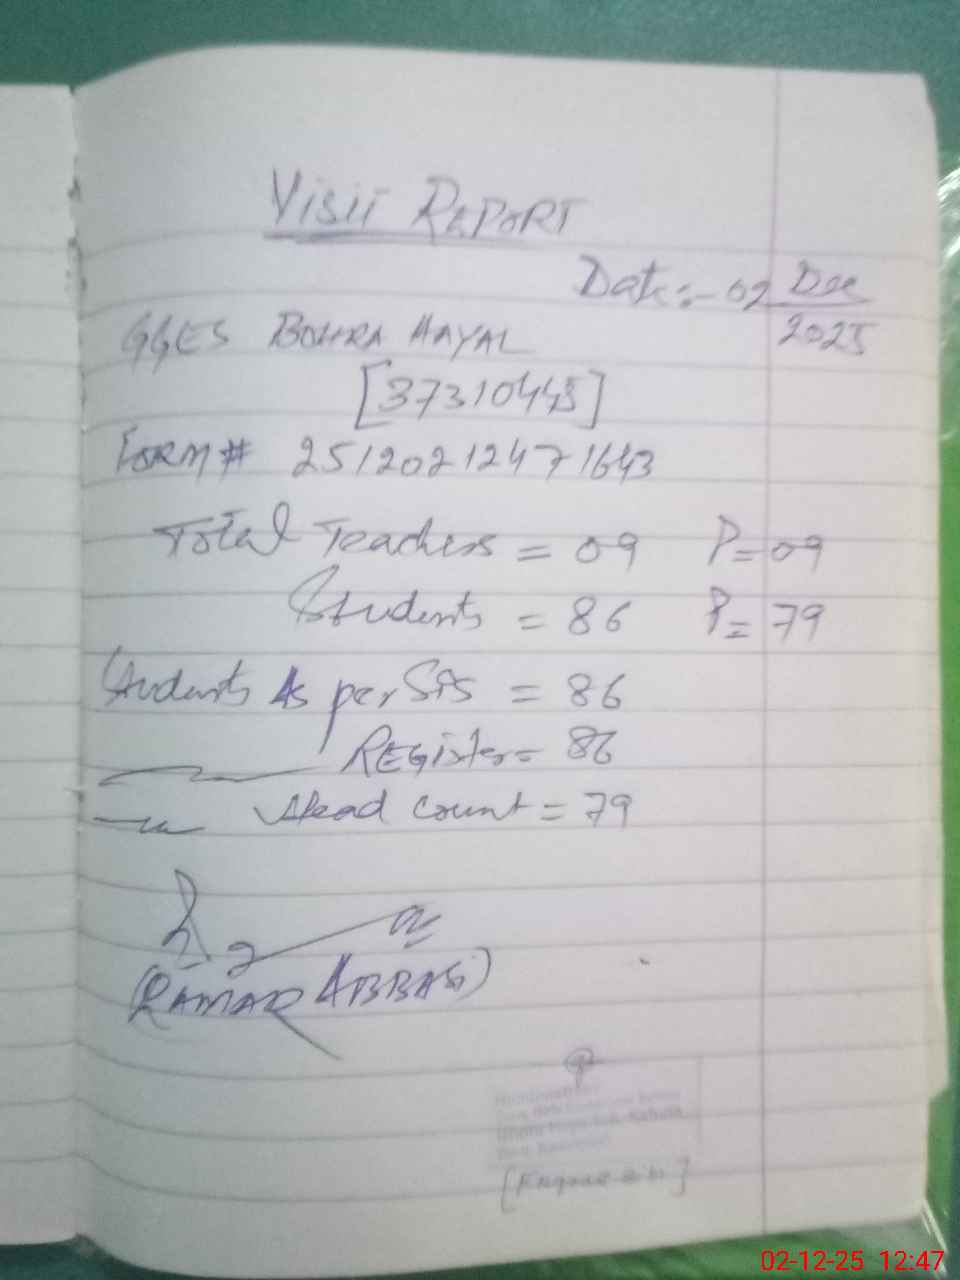 VISIT REPORT
Date:- 02 Dec
2025
GGES BOHRA HAYAL
[37310445]
FORM# 251202124771643
Total Teachers = 09 P = 09
Students = 86 P = 79
Students As per SIS = 86
REGister = 86
Head Count = 79
ABBASI)
Headmistress
02-12-25 12:47